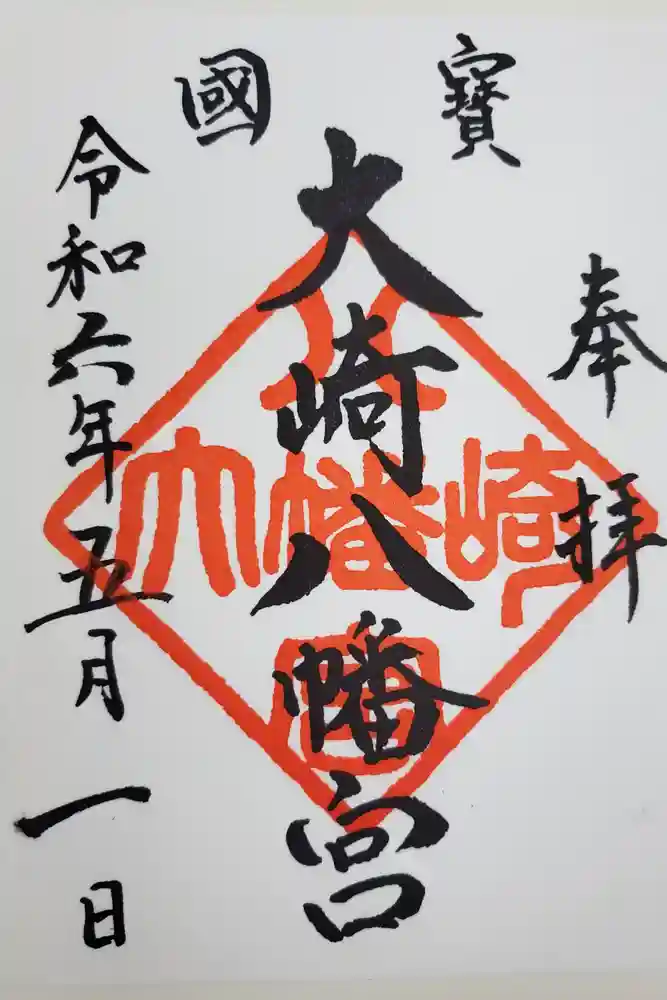 奉拝
寳國
大崎八幡宮
令和六年五月一日
八
大幡崎
宮